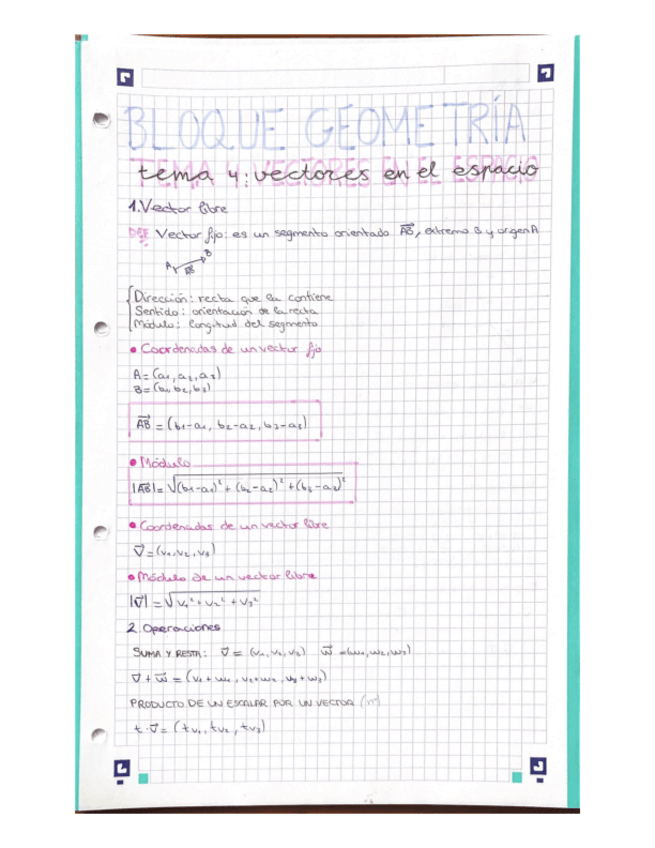 BLOQUE GEOMETRÍA
TEMA 4: VECTORES EN EL ESPACIO
tema 4: vectores en el espacio
1. Vector libre
DEF Vector fijo: es un segmento orientado AB⃗, extremo B y origen A
B
A
AB⃗
Dirección: recta que la contiene
Sentido: orientación de la recta
Módulo: longitud del segmento
• Coordenadas de un vector fijo
A = (a₁, a₂, a₃)
B = (b₁, b₂, b₃)
AB⃗ = (b₁-a₁, b₂-a₂, b₃-a₃)
• Módulo
|AB⃗| = √(b₁-a₁)² + (b₂-a₂)² + (b₃-a₃)²
• Coordenadas de un vector libre
v⃗ = (v₁, v₂, v₃)
• Módulo de un vector libre
|v⃗| = √v₁² + v₂² + v₃²
2. Operaciones
SUMA Y RESTA: v⃗ = (v₁, v₂, v₃) w⃗ = (w₁, w₂, w₃)
v⃗ + w⃗ = (v₁ + w₁, v₂ + w₂, v₃ + w₃)
PRODUCTO DE UN ESCALAR POR UN VECTOR (nº)
t · v⃗ = (tv₁, tv₂, tv₃)